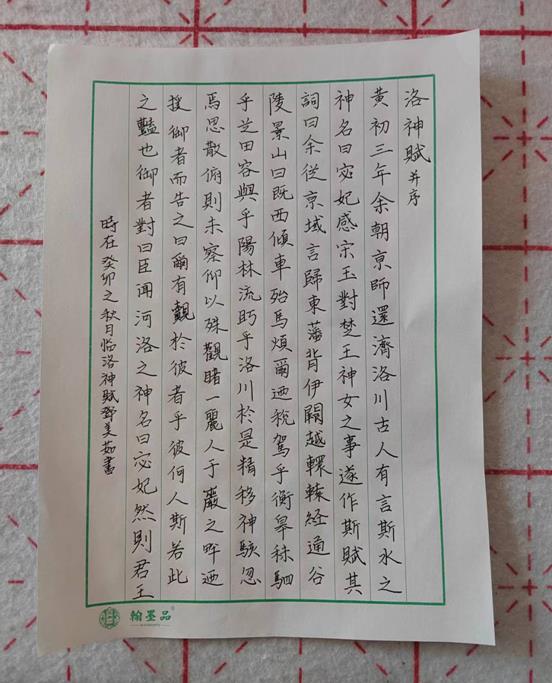 洛神賦 并序
黃初三年余朝京師還濟洛川古人有言斯水之
神名曰宓妃感宋玉對楚王神女之事遂作斯賦其
詞曰余從京域言歸東藩背伊闕越轘轅経通谷
陵景山日既西傾車殆馬煩爾迺稅駕乎衡皋秣駟
乎芝田容與乎陽林流眄乎洛川於是精移神駭忽
焉思散俯則未察仰以殊觀睹一麗人于巖之畔迺
援御者而告之曰爾有覿於彼者乎彼何人斯若此
之豔也御者對曰臣聞河洛之神名曰宓妃然則君王
時在癸卯之秋月臨洛神賦鄧美茹書
翰墨品